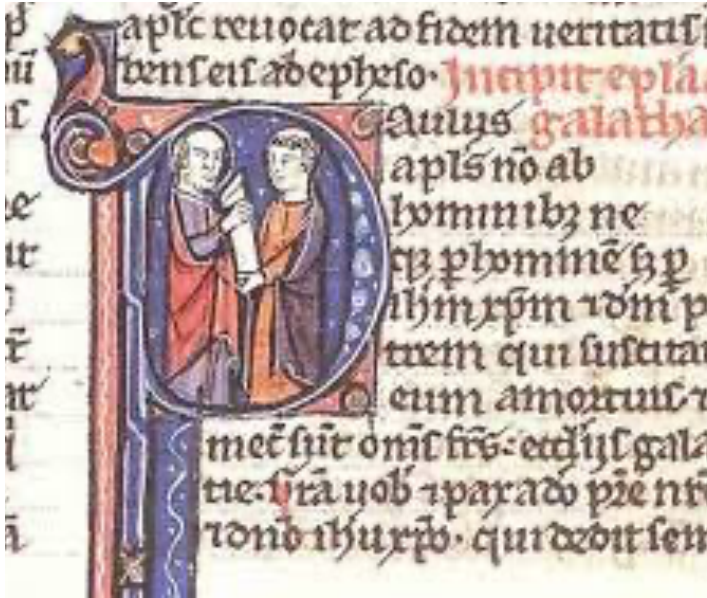 apłc reuocat ad fidem ueritatis
bens eis ab epheso. Incipit epła
Paulus galatha
apłs nō ab
hominibꝫ ne
qꝫ ꝑ hominē sꝫ ꝑ
ihm xp̄m ⁊ dm̄ p
trem qui suscitau
eum a mortuis. ⁊
mecū sūt om̄s frs̄. eccłijs gala
tie. Gr̄a uob̄ ⁊ pax a do p̄re nr̄o
⁊ dn̄o ihu xp̄o. qui dedit sem